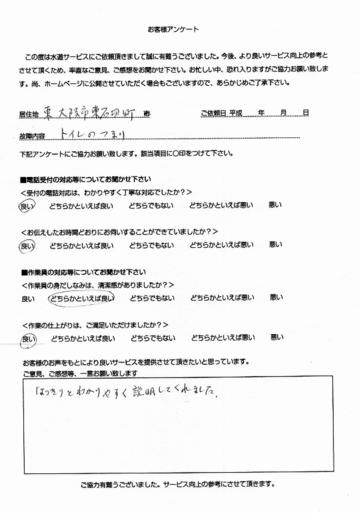 お客様アンケート
この度は水道サービスにご依頼頂きまして誠に有難うございました。今後、より良いサービス向上の参考と
させて頂くため、率直なご意見、ご感想をお聞かせ下さい。お忙しい中、恐れ入りますがご協力お願い致しま
す。尚、ホームページに公開させていただく場合もございますので、あらかじめご了承下さい。
居住地 東大阪市東石切町 ご依頼日 平成 年 月 日
故障内容 トイレのつまり
下記アンケートにご協力お願い致します。該当項目に〇印をつけて下さい。
■電話受付の対応等についてお聞かせ下さい
<受付の電話対応は、わかりやすく丁寧な対応でしたか?>
良い どちらかといえば良い どちらでもない どちらかといえば悪い 悪い
<お伝えしたお時間どおりにお伺いすることができていましたか?>
良い どちらかといえば良い どちらでもない どちらかといえば悪い 悪い
■作業員の対応等についてお聞かせ下さい
<作業員の身だしなみは、清潔感がありましたか?>
良い どちらかといえば良い どちらでもない どちらかといえば悪い 悪い
<作業の仕上がりは、ご満足いただけましたか?>
良い どちらかといえば良い どちらでもない どちらかといえば悪い 悪い
お客様のお声をもとにより良いサービスを提供させて頂きたいと思っています。
ご意見、ご感想等、一言お願い致します
はっきりとわかりやすく説明してくれました。
ご協力有難うございました。サービス向上の参考にさせて頂きます。